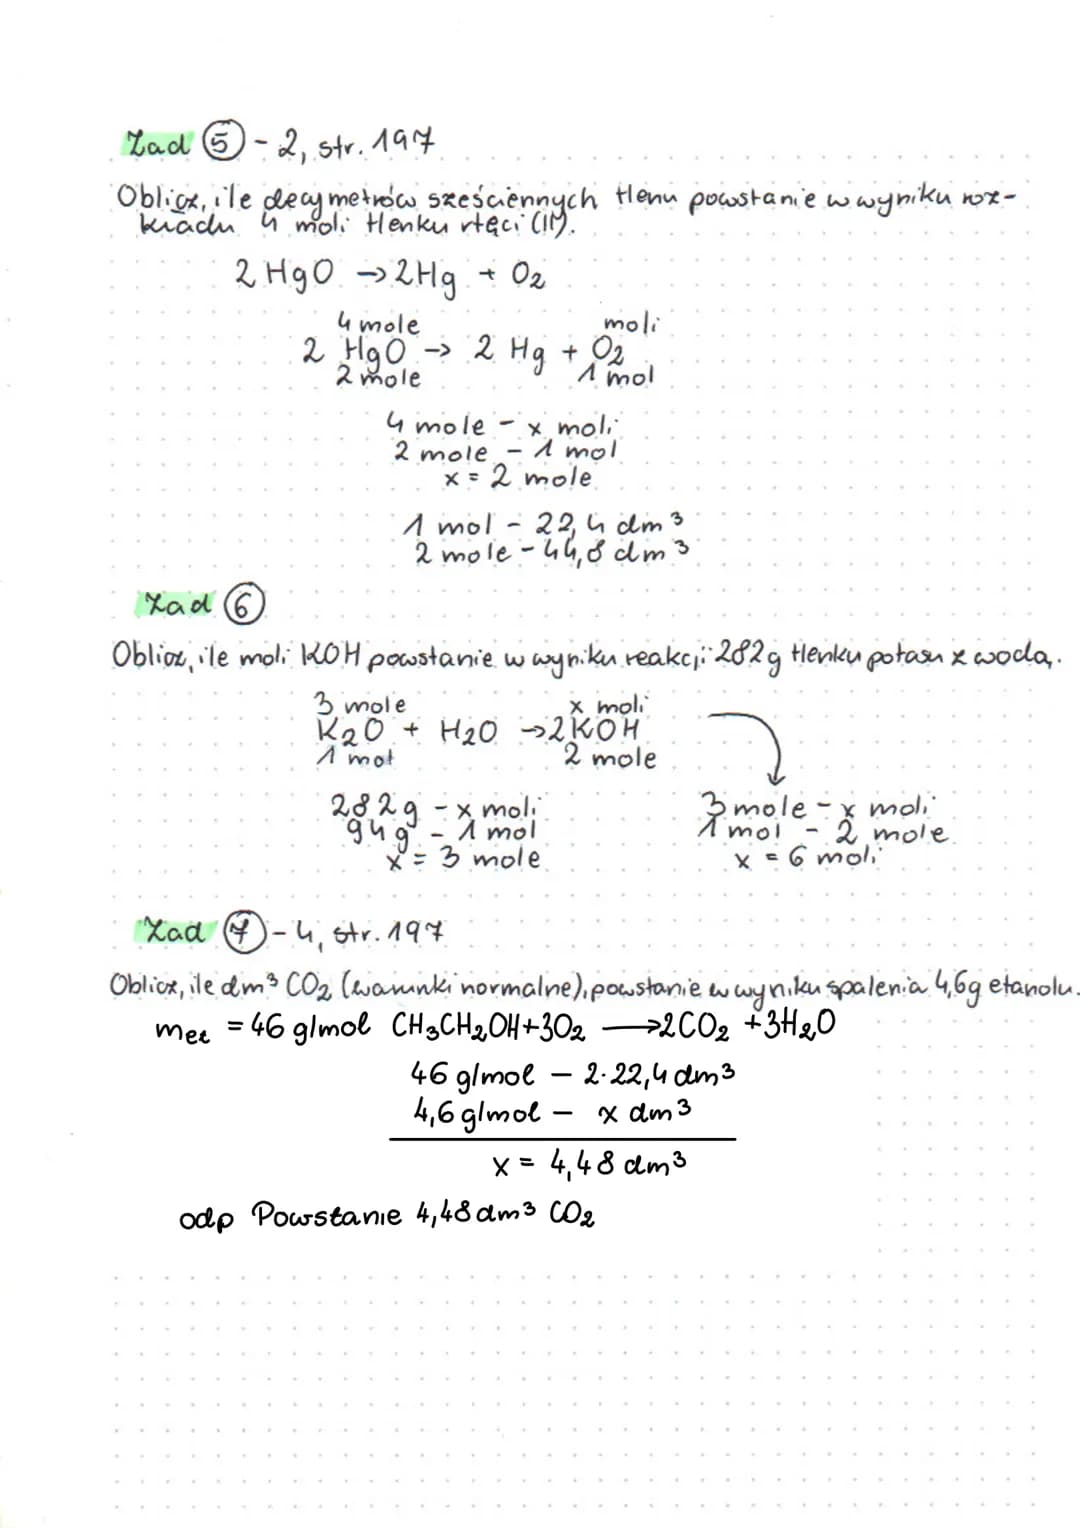 Zad 5 - 2, str. 197
Oblicz, ile decymetrów sześciennych tlenu powstanie w wyniku roz-
kładu 4 moli tlenku rtęci (II).
2 HgO → 2Hg + O2
4 mole moli
2 HgO → 2 Hg + O2
2 mole 1 mol
4 mole - x moli
2 mole - 1 mol
x = 2 mole
1 mol - 22,4 dm³
2 mole - 44,8 dm³
Zad 6
Oblicz, ile moli KOH powstanie w wyniku reakcji 282g tlenku potasu z wodą.
3 mole x moli
K2O + H2O → 2KOH
1 mol 2 mole
282g - x moli
94g - 1 mol
x = 3 mole
3 mole - x moli
1 mol - 2 mole
x = 6 moli
Zad 7 - 4, str. 197
Oblicz, ile dm³ CO2 (warunki normalne), powstanie w wyniku spalenia 4,6g etanolu.
met = 46 g/mol CH3CH2OH+3O2 → 2CO2 +3H2O
46 g/mol - 2·22,4 dm³
4,6 g/mol - x dm³
x = 4,48 dm³
odp Powstanie 4,48 dm³ CO2